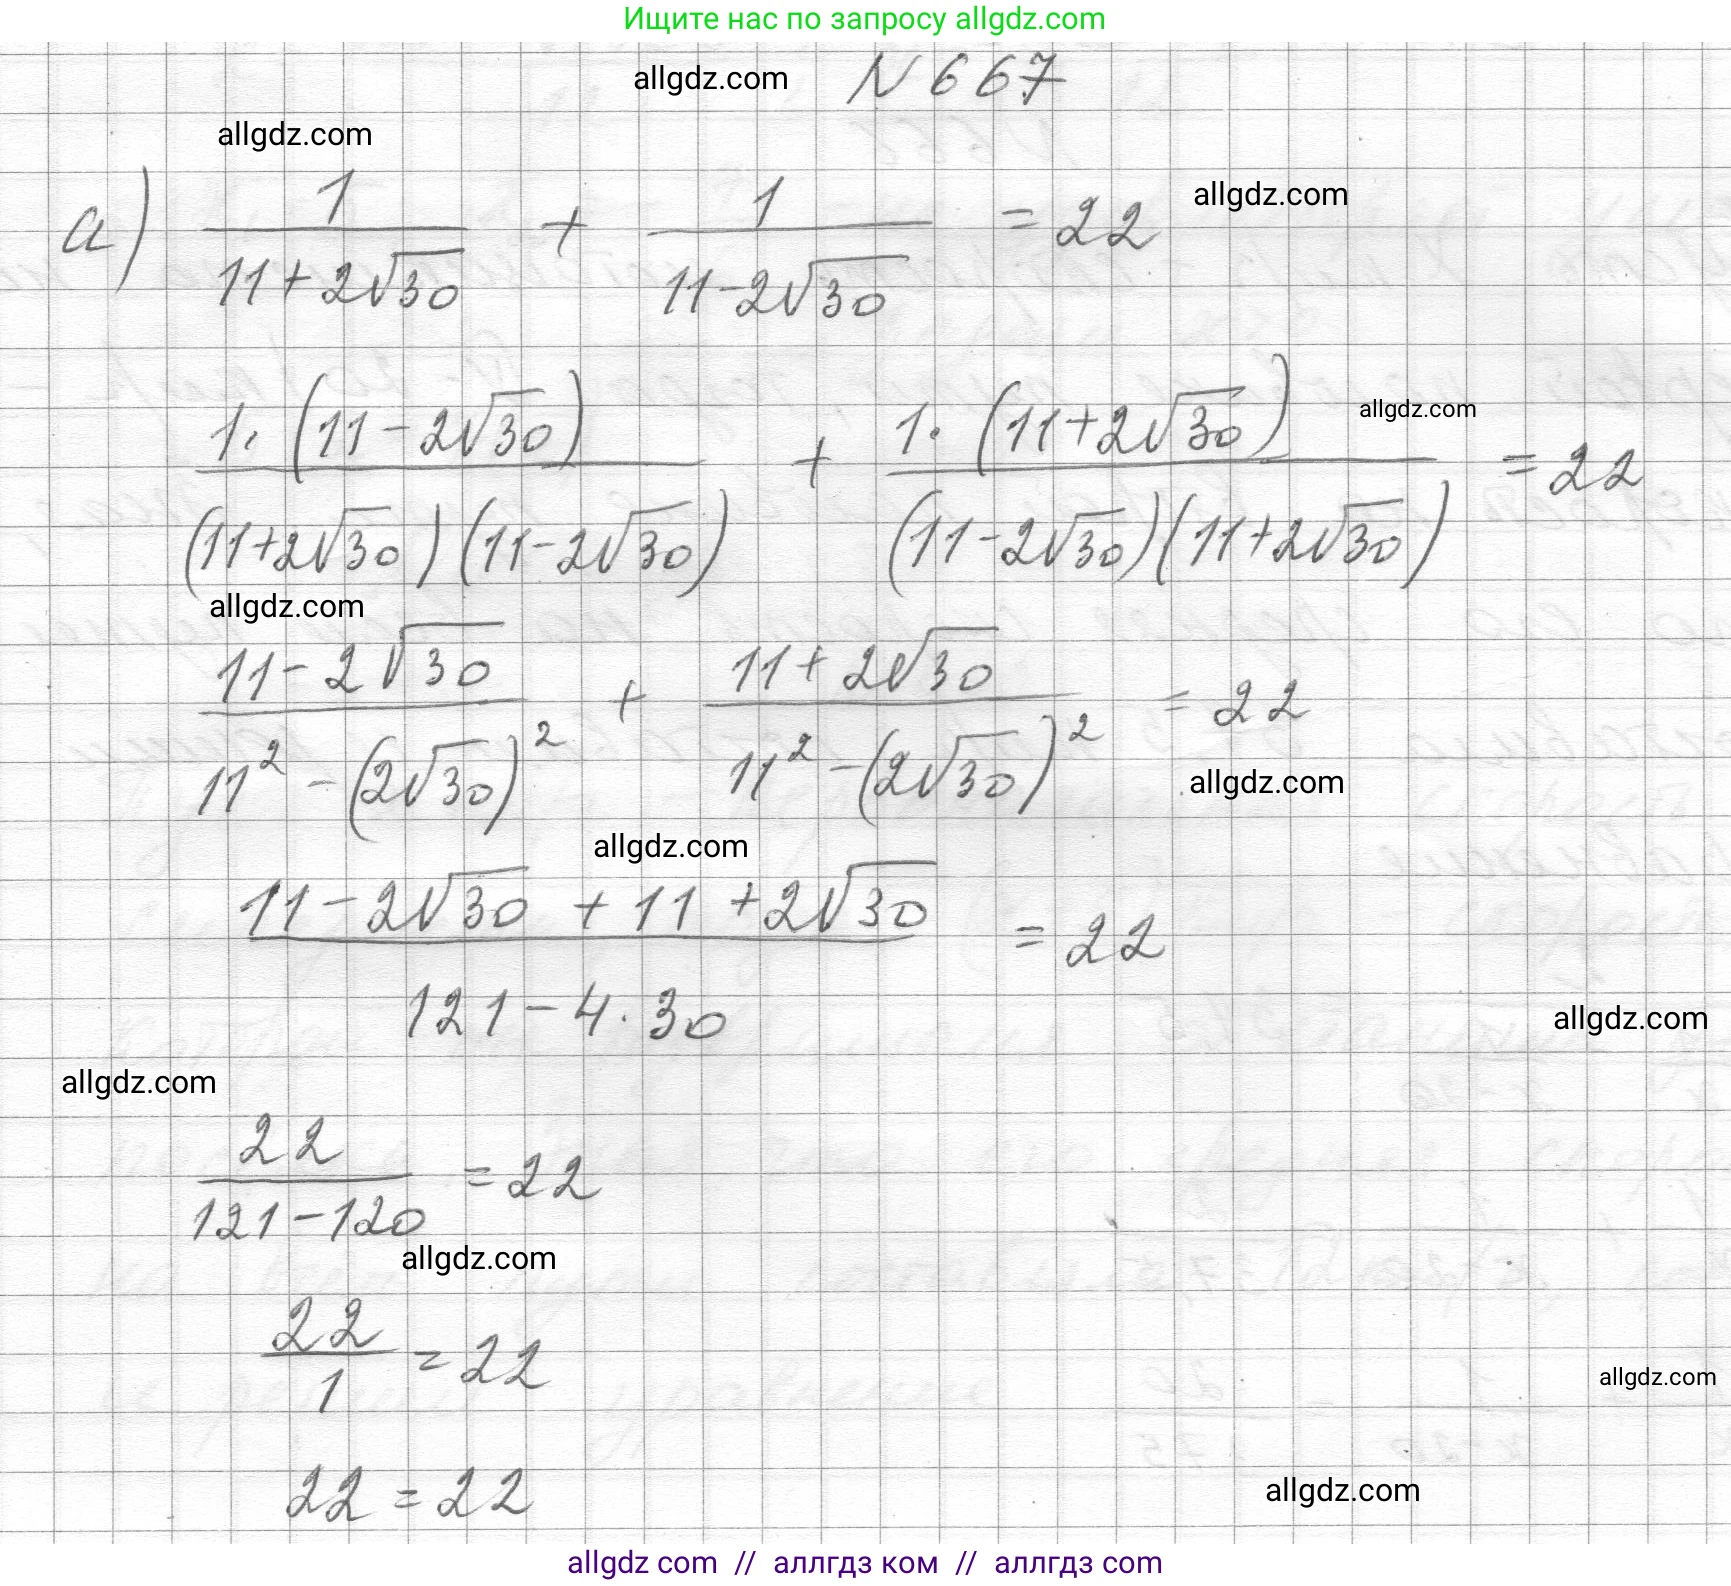 Ищите нас по запросу allgdz.com
allgdz.com N 667
allgdz.com
а) 1/(11+2√30) + 1/(11-2√30) = 22 allgdz.com
1·(11-2√30)/((11+2√30)(11-2√30)) + 1·(11+2√30)/((11-2√30)(11+2√30)) = 22 allgdz.com
allgdz.com
(11-2√30)/(11²-(2√30)²) + (11+2√30)/(11²-(2√30)²) = 22
allgdz.com
allgdz.com
(11-2√30+11+2√30)/(121-4·30) = 22
allgdz.com
allgdz.com
22/(121-120) = 22
allgdz.com
22/1 = 22
allgdz.com
22 = 22
allgdz.com
allgdz com // аллгдз ком // аллгдз com